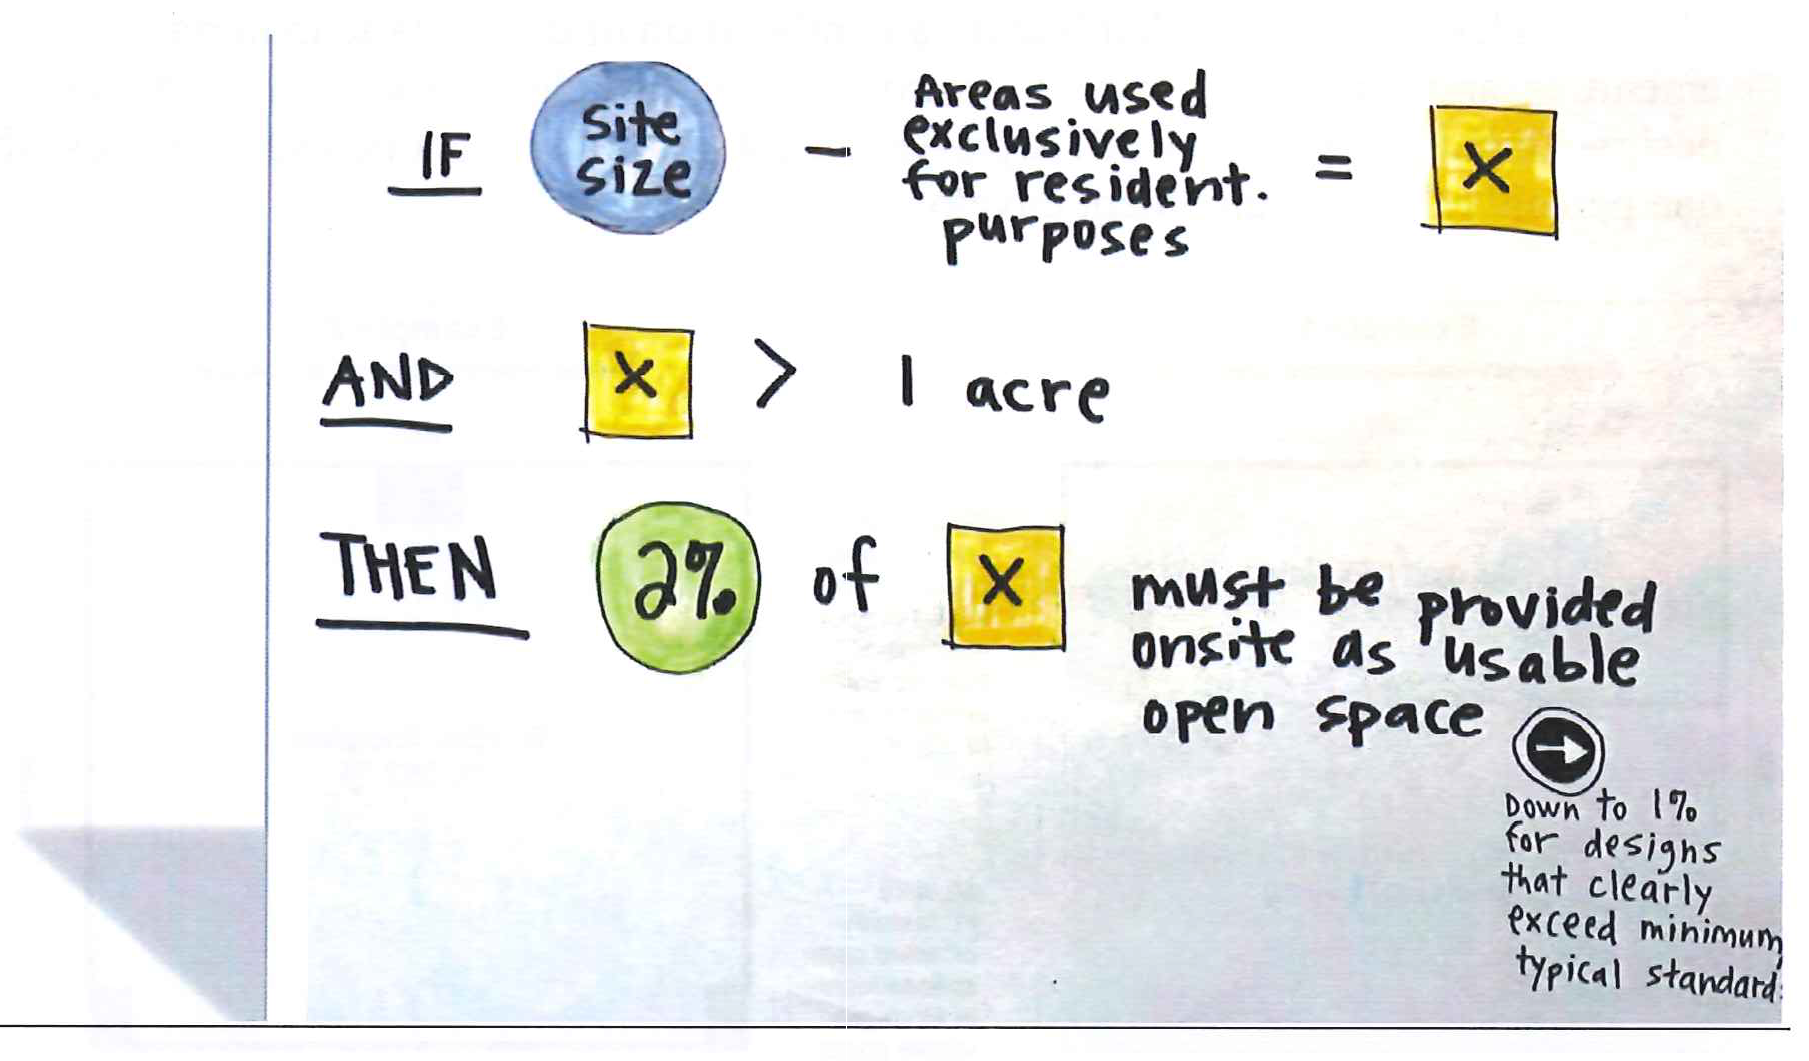 IF site size - Areas used exclusively for resident. purposes = X
AND X > 1 acre
THEN 2% of X must be provided
onsite as usable
open space
→
Down to 1%
for designs
that clearly
exceed minimum,
typical standard.